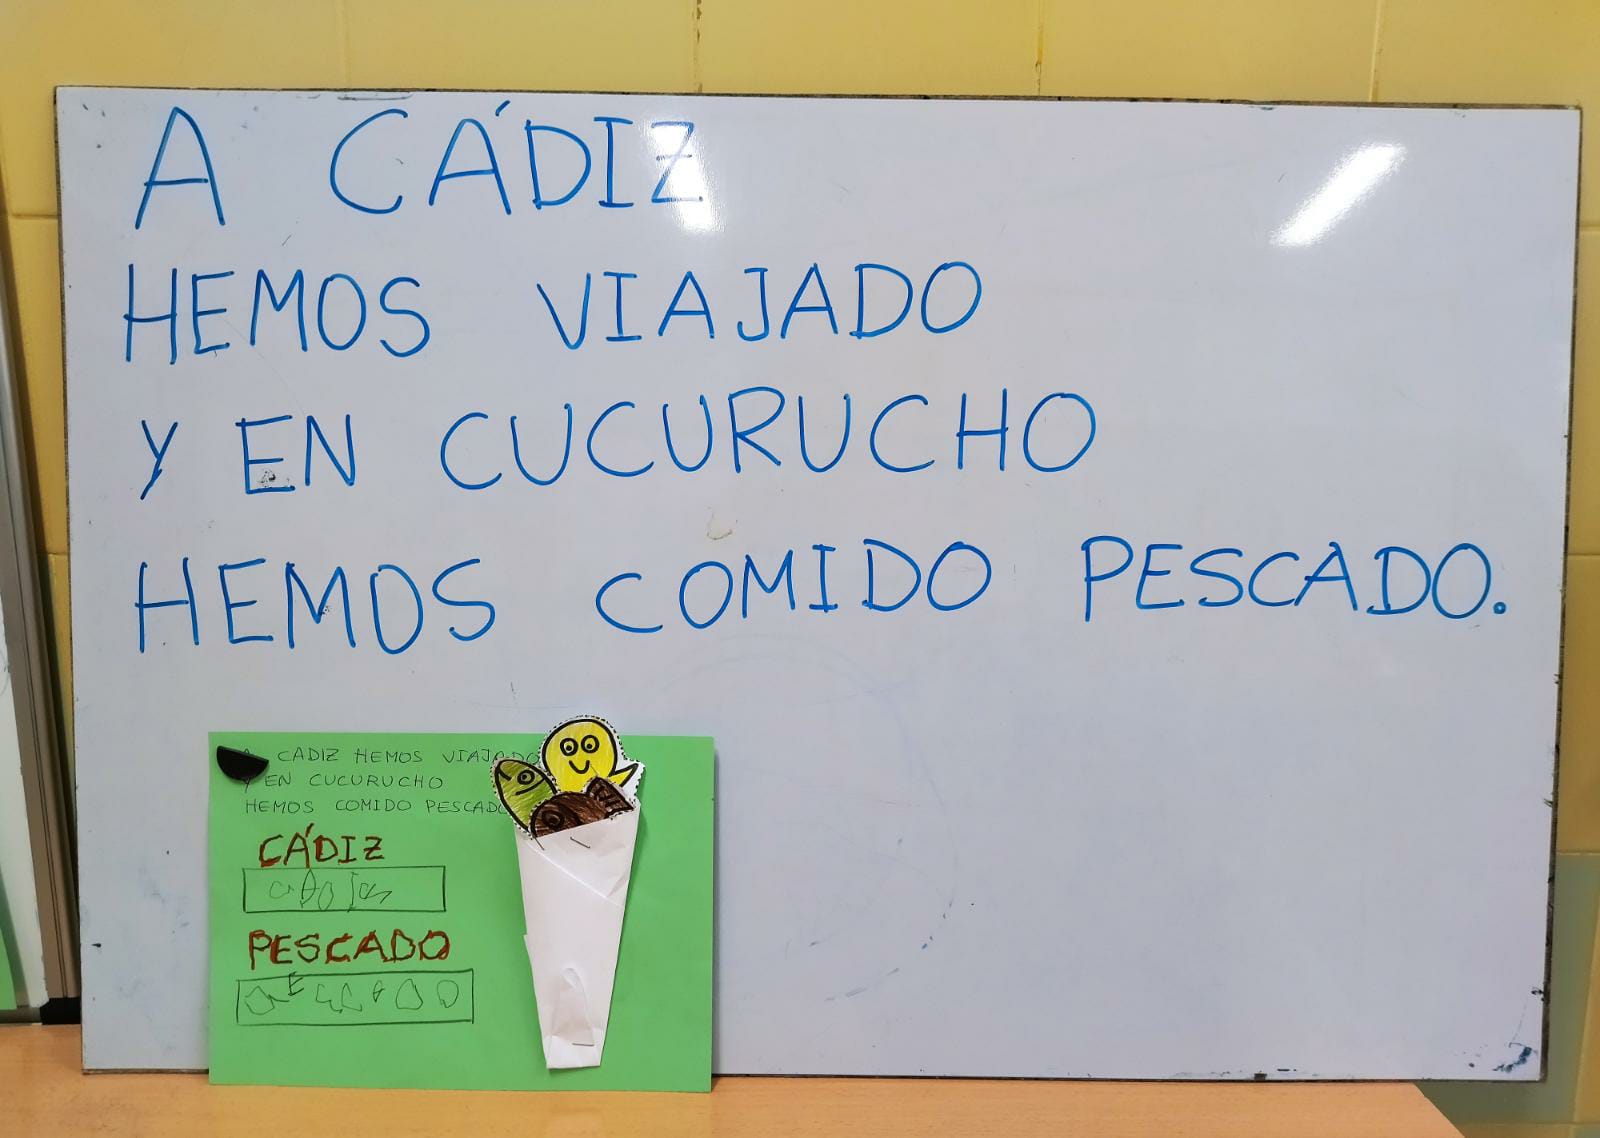 A CÁDIZ
HEMOS VIAJADO
Y EN CUCURUCHO
HEMOS COMIDO PESCADO.
A CADIZ HEMOS VIAJADO
Y EN CUCURUCHO
HEMOS COMIDO PESCADO
CÁDIZ
PESCADO